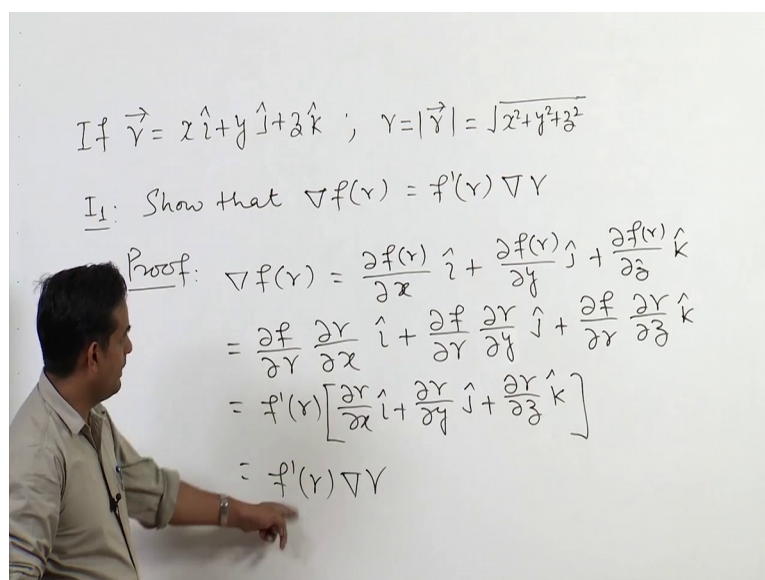 If r⃗ = x î + y ĵ + z k̂ ; r = |r⃗| = √(x²+y²+z²)
I₁: Show that ∇f(r) = f'(r) ∇r
Proof: ∇f(r) = ∂f(r)/∂x î + ∂f(r)/∂y ĵ + ∂f(r)/∂z k̂
= ∂f/∂r ∂r/∂x î + ∂f/∂r ∂r/∂y ĵ + ∂f/∂r ∂r/∂z k̂
= f'(r) [∂r/∂x î + ∂r/∂y ĵ + ∂r/∂z k̂]
= f'(r) ∇r